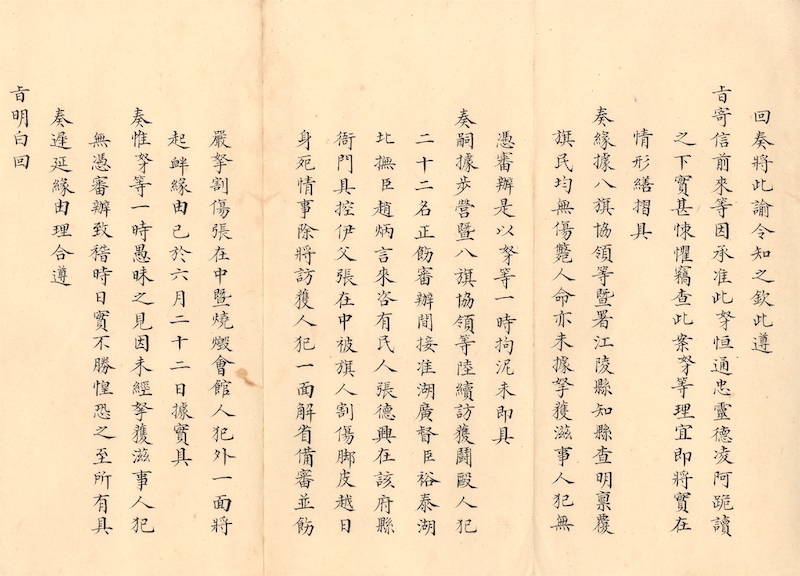 回奏將此諭令知之欽此遵
旨寄信前來等因承准此孥恒通忠靈德凌阿跪讀
之下實甚悚懼竊查此案孥等理宜即將實在
情形繕摺具
奏緣據八旗協領等暨署江陵縣知縣查明稟覆
旗民均無傷斃人命亦未據拏獲滋事人犯無
憑審辦是以孥等一時拘泥未即具
奏嗣據步營暨八旗協領等陸續訪獲鬪毆人犯
二十二名正飭審辦間接准湖廣督臣裕泰湖
北撫臣趙炳言來咨有民人張德興在該府縣
衙門具控伊父張在中被旗人割傷脚皮越日
身死情事除將訪獲人犯一面解省備審並飭
嚴拏割傷張在中暨燒燬會館人犯外一面將
起衅緣由已於六月二十二日據實具
奏惟孥等一時愚昧之見因未經拏獲滋事人犯
無憑審辦致稽時日實不勝惶恐之至所有具
奏遲延緣由理合遵
旨明白回